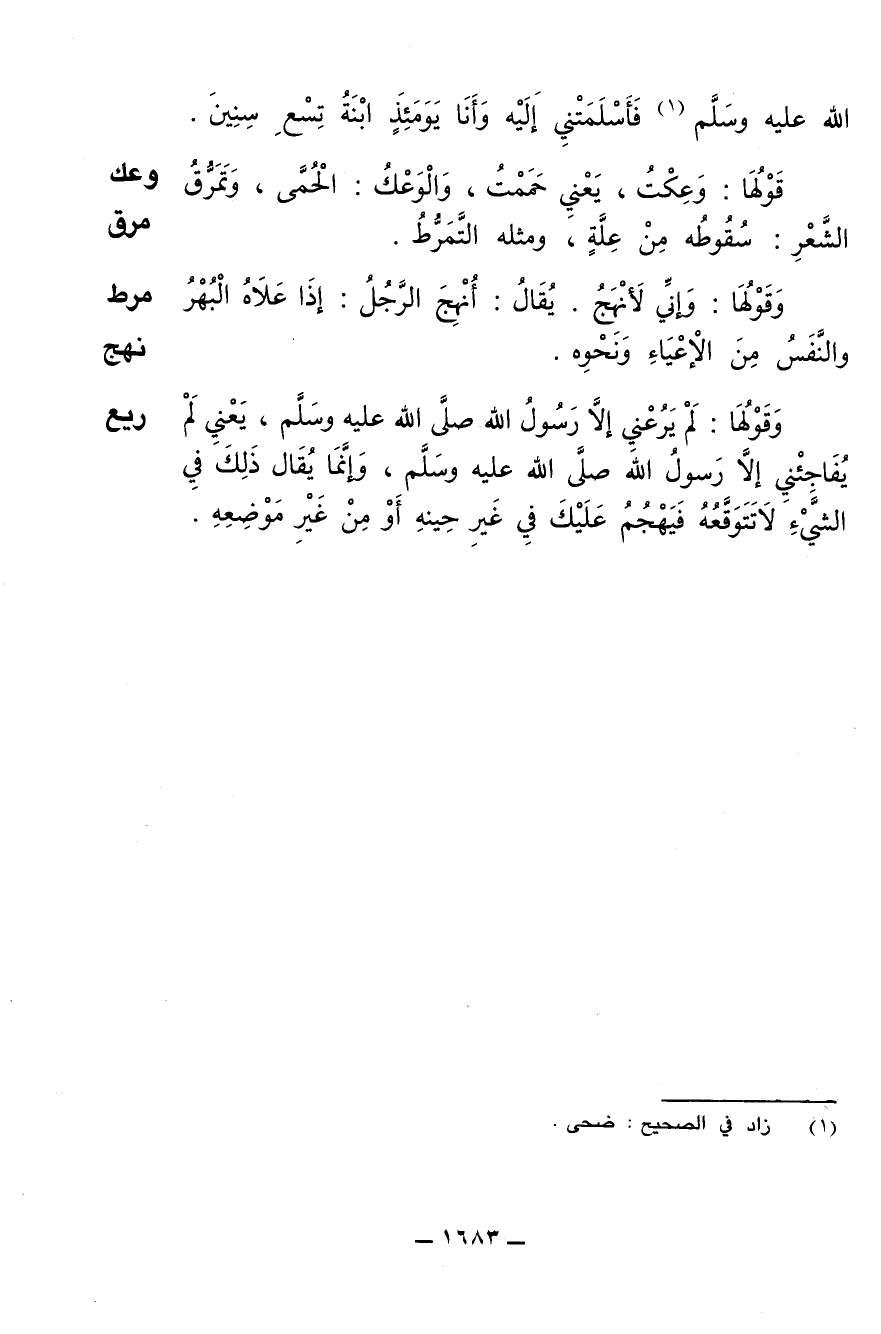 الله عليه وسَلَّم (١) فَأَسْلَمَتْني إِلَيْه وَأَنَا يَوَمَئِذٍ ابْنَةُ تِسْعِ سِنِينَ .
قَوْلُهَا : وَعِكْتُ ، يَعْنِي حَمَمْتُ ، وَالْوَعْكُ : الْحُمَّى ، وَتَمَرُّقُ وعك
الشَّعْرِ : سُقُوطُه مِنْ عِلَّةٍ ، ومثله التَّمَرُّطُ . مرق
وَقَوْلُهَا : وَإِنِّي لَأَنْهَجُ . يُقَالُ : أُنْهِجَ الرَّجُلُ : إذَا عَلَاهُ الْبُهْرُ مرط
والنَّفَسُ مِنَ الْإعْيَاءِ وَنَحْوِه . نهج
وَقَوْلُهَا : لَمْ يَرُعْني إلاَّ رَسُولُ الله صلَّى الله عليه وسَلَّم ، يَعْني لَمْ ريع
يُفَاجِئْنِي إلاَّ رَسولُ الله صلَّى الله عليه وسَلَّم ، وَإنَّمَا يُقَال ذَلِكَ فِي
الشَّيْءِ لاَتَتَوَقَّعُهُ فَيَهْجُمُ عَلَيْكَ فِي غَيرِ حِينهِ أَوْ مِنْ غَيْرِ مَوْضِعِهِ .
(١) زاد في الصحيح : ضحى .
ـ ١٦٨٣ ـ